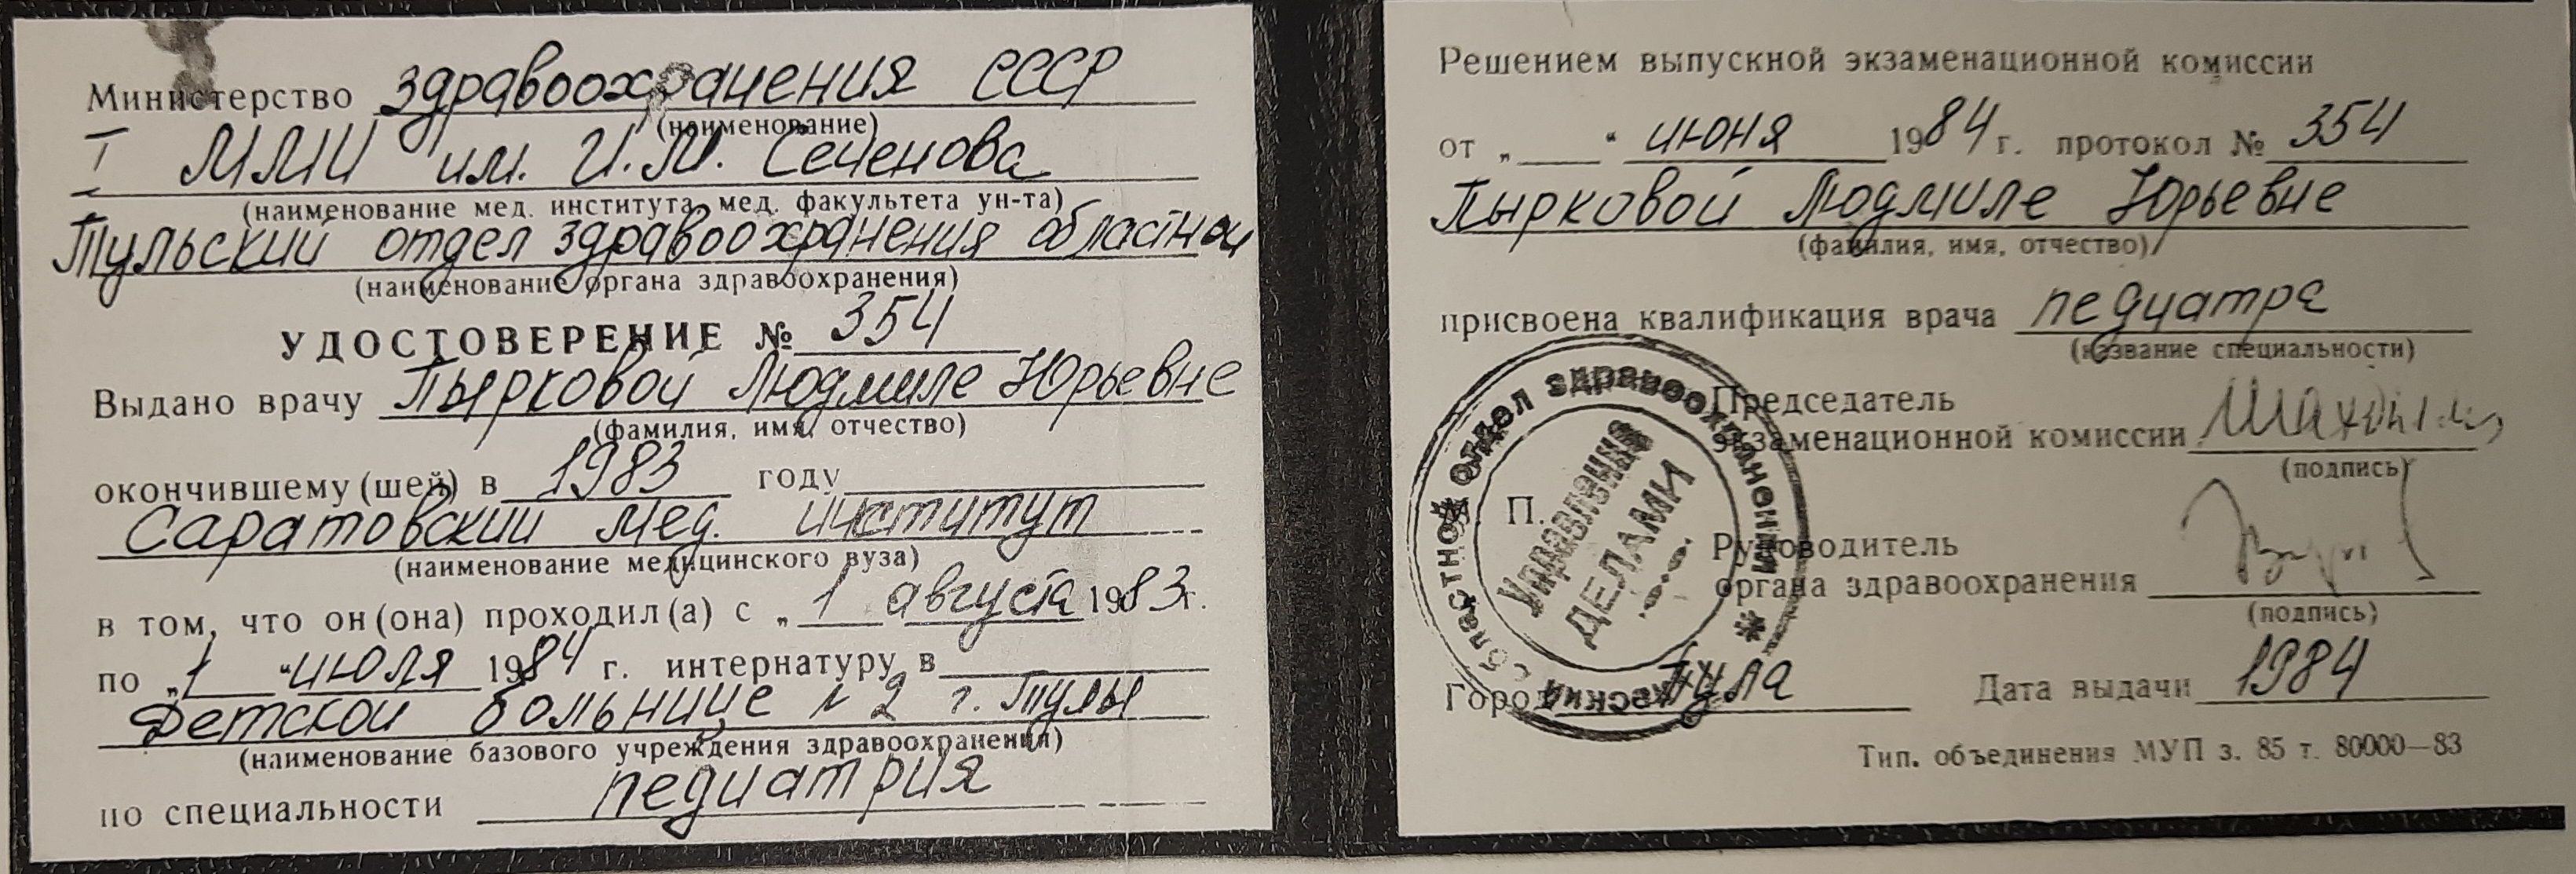 Министерство здравоохранения СССР
(наименование)
I ММИ им. И.М. Сеченова
(наименование мед. института, мед. факультета ун-та)
Тульский отдел здравоохранения областной
(наименование органа здравоохранения)
УДОСТОВЕРЕНИЕ № 354
Выдано врачу Пырковой Людмиле Юрьевне
(фамилия, имя, отчество)
окончившему (шей) в 1983 году
Саратовский мед. институт
(наименование медицинского вуза)
в том, что он (она) проходил (а) с „ 1 августа 1983 г.
по „1 “ июля 1984 г. интернатуру в
Детской больнице № 2 г. Тулы
(наименование базового учреждения здравоохранения)
по специальности педиатрия
Решением выпускной экзаменационной комиссии
от „ “ июня 1984 г. протокол № 354
Пырковой Людмиле Юрьевне
(фамилия, имя, отчество)
присвоена квалификация врача педиатра
(название специальности)
Председатель
экзаменационной комиссии
(подпись)
М. П.
Руководитель
органа здравоохранения
(подпись)
Город Тула Дата выдачи 1984
Тип. объединения МУП з. 85 т. 80000—83
областной отдел здравоохранения
Управление
ДЕЛАМИ